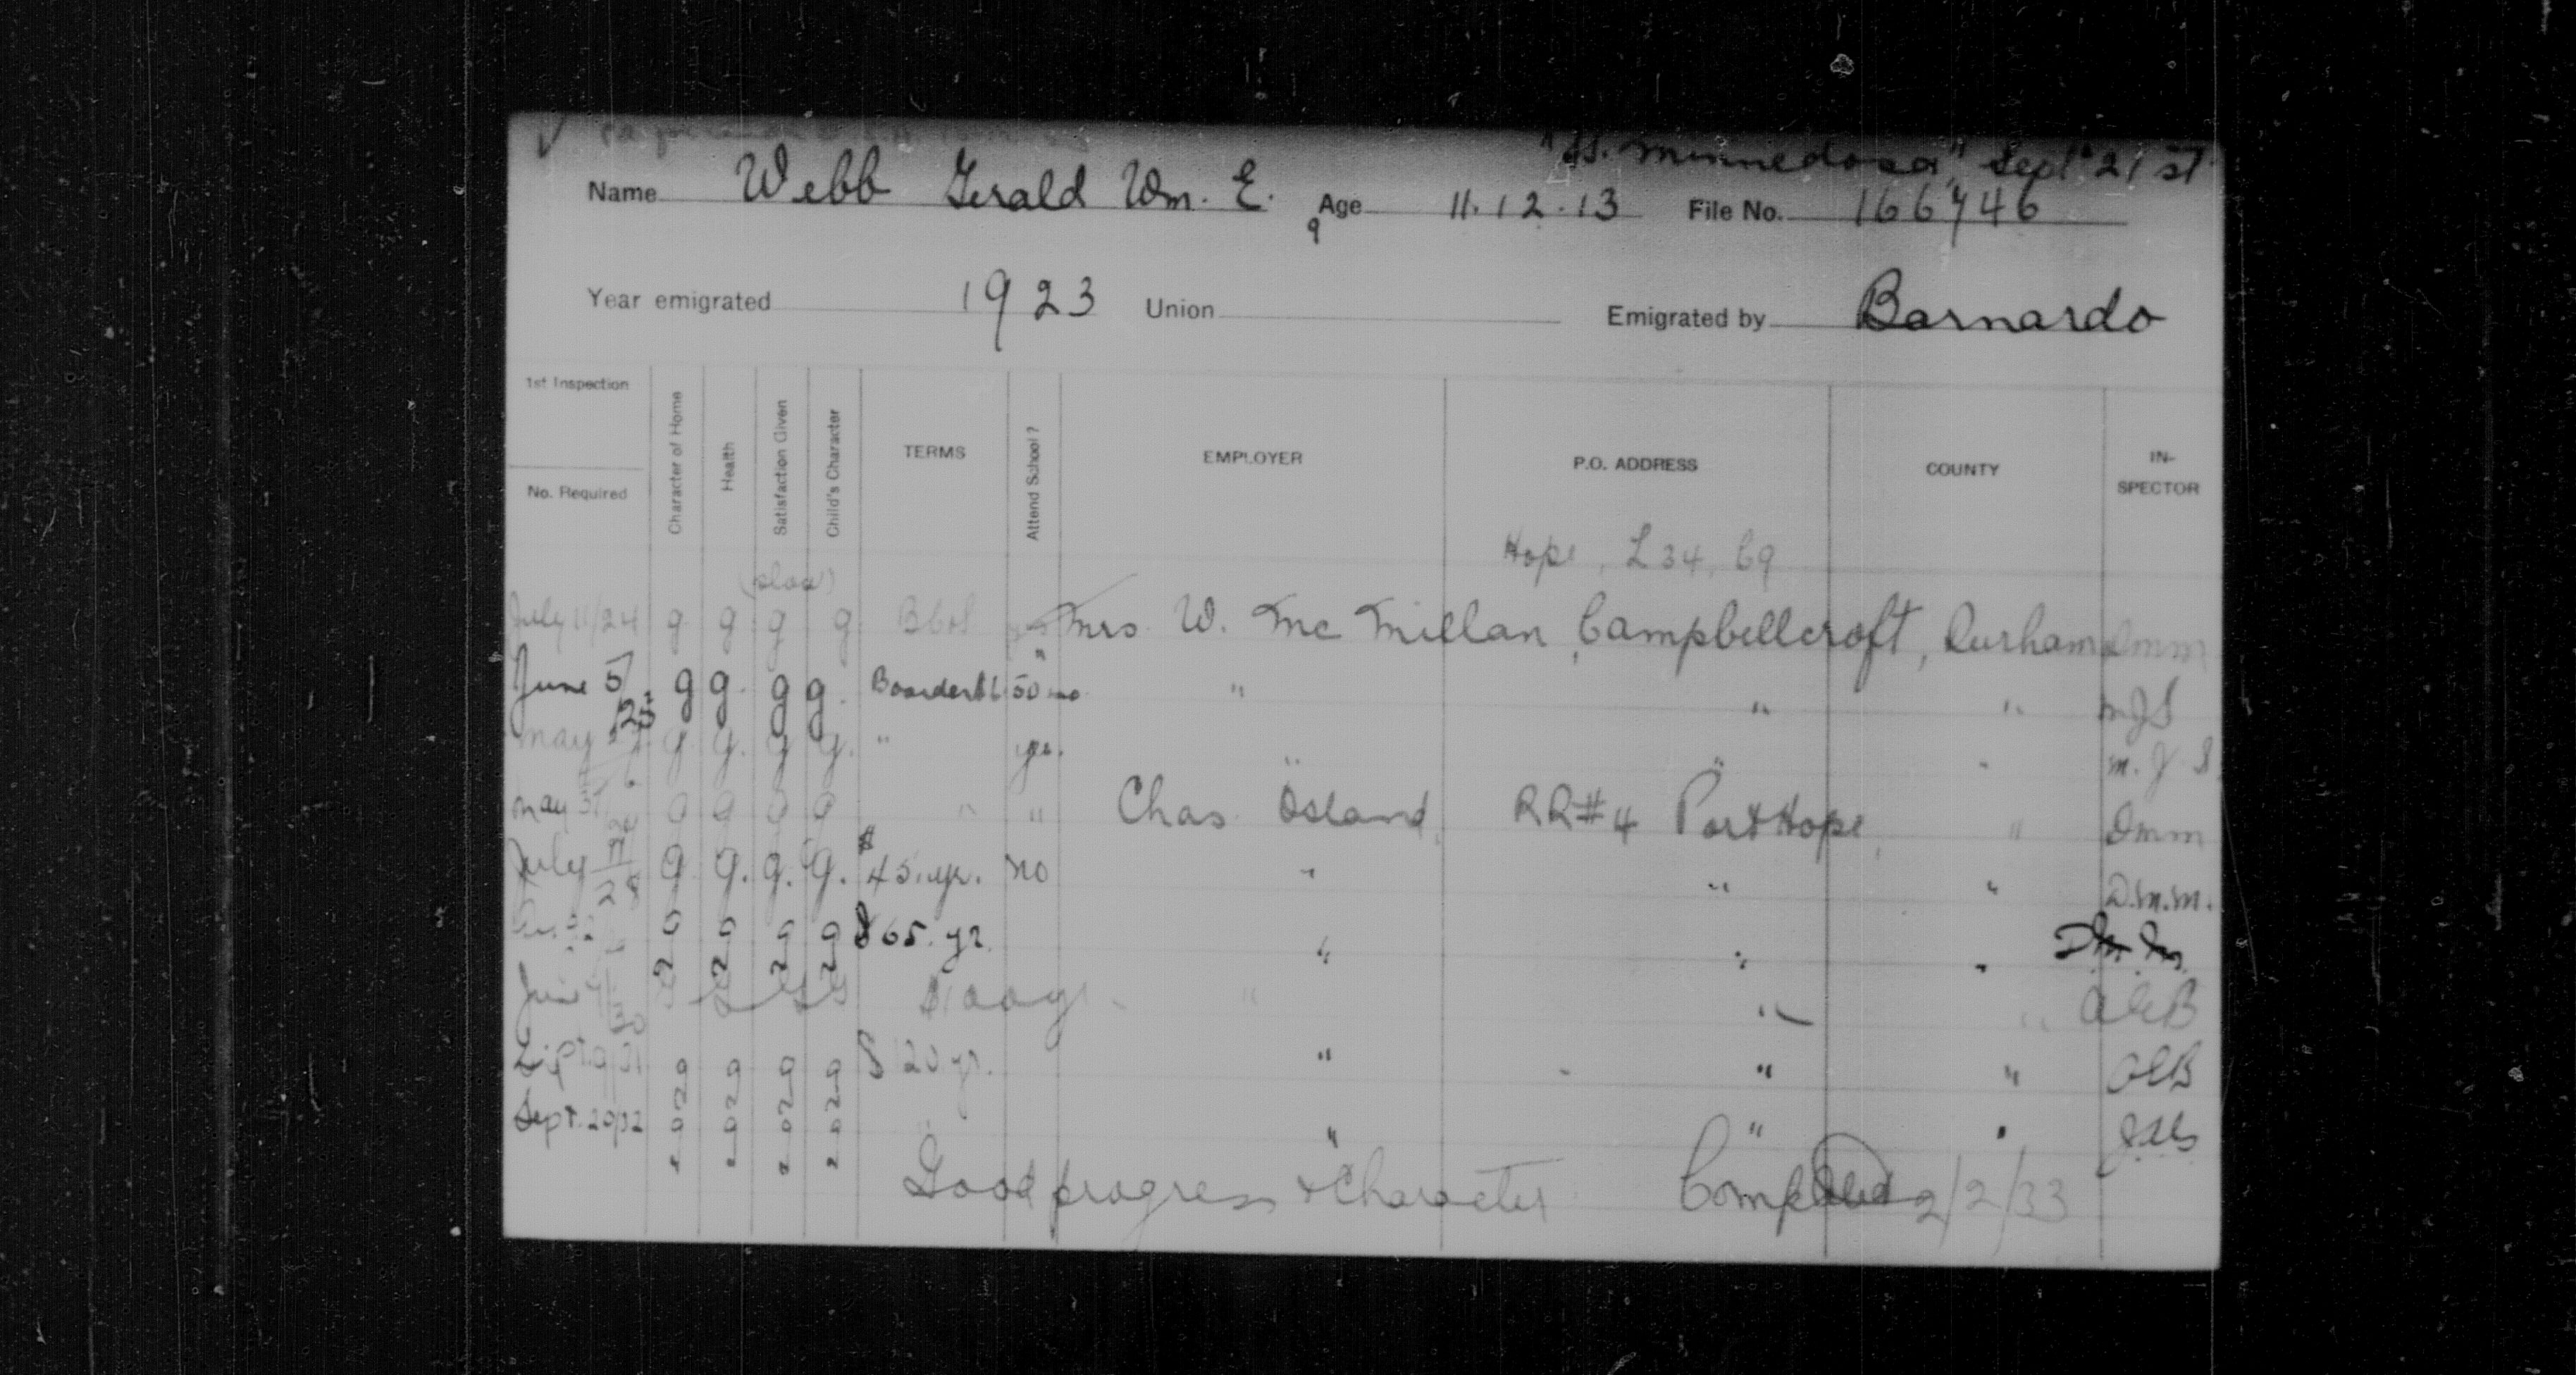 "SS. Minnedosa" Sept 21st
Name Webb Gerald Wm. E. Age 11.12.13 File No. 166746
9
Year emigrated 1923 Union Emigrated by Barnardo
1st Inspection
No. Required
Character of Home
Health
Satisfaction Given
Child's Character
TERMS
Attend School?
EMPLOYER
P.O. ADDRESS
COUNTY
IN-SPECTOR
Hope, L34, C9
(slow)
July 11/24 g g g g yes Mrs. W. McMillan, Campbellcroft, Durham DMM
June 5/25 g g. g g. Boarder 50 mo " " " " MJS
May g. g. g g. " yes. " " " M.J S
May g g g g " " Chas. Osland, RR#4 Port Hope, " DMM
July 28 g g. g. g. $45. yr. no " " " D.M.M.
g g g g $65. yr. " " " DM.M.
30 $100 yr " " "
Sept 9/31 g g g g $120 yr. " " " OCB
Sept. 20/32 g g g g " " " "
Good progress & Character Completed 2/2/33